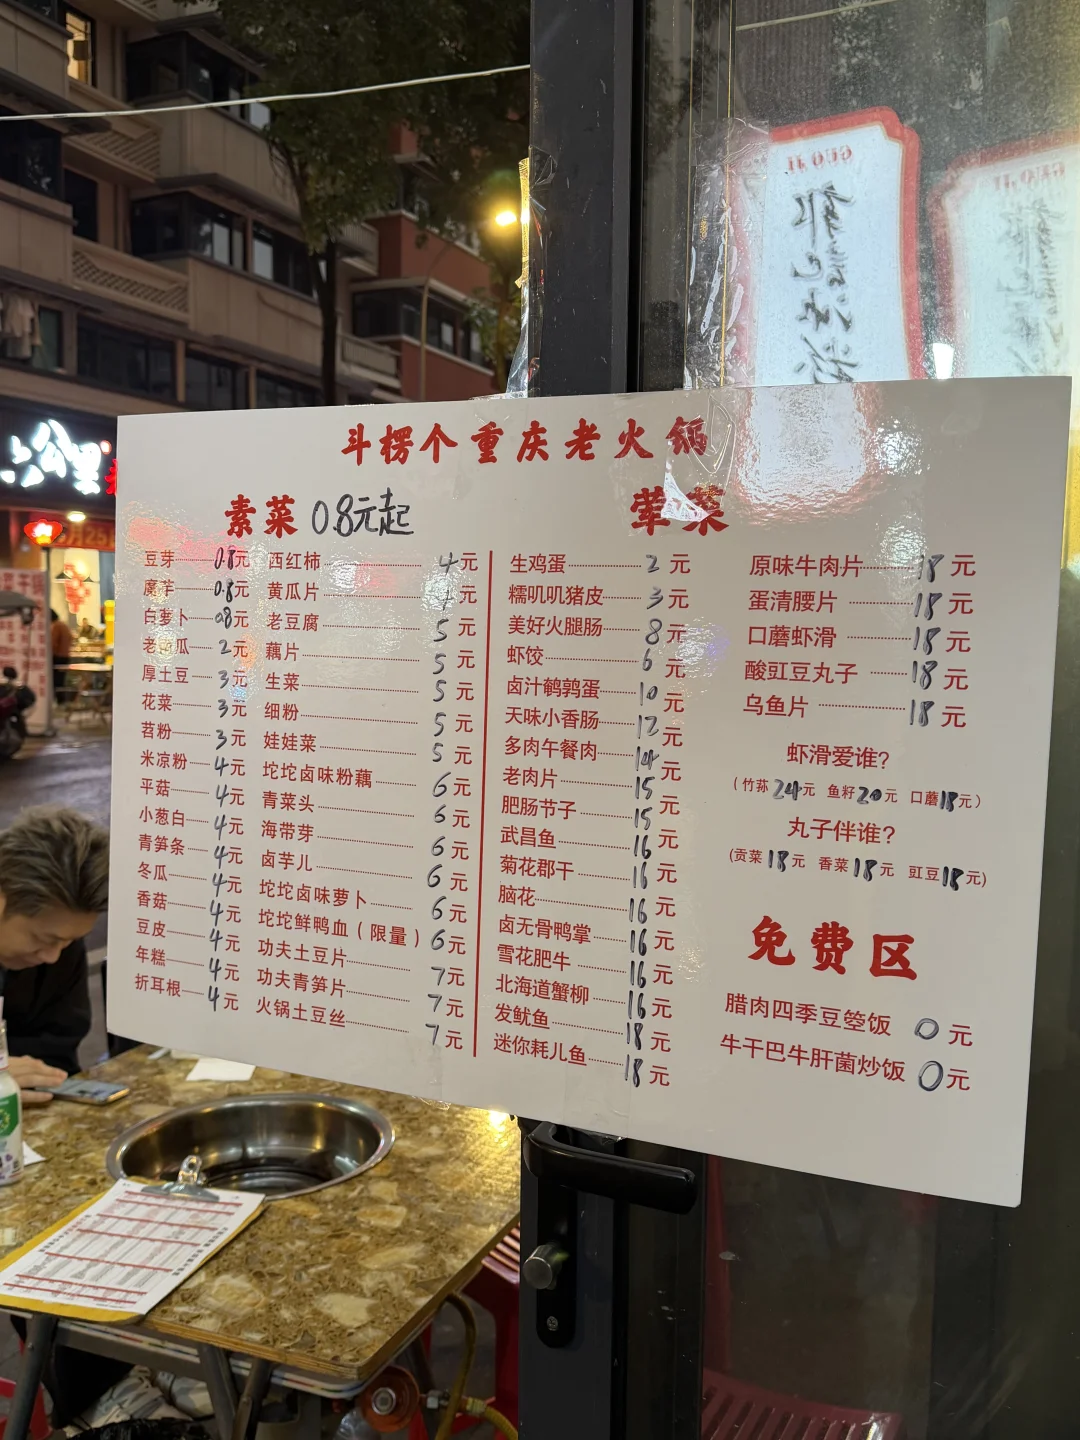 斗楞个重庆老火锅
素菜 0.8元起
豆芽 0.8元
魔芋 0.8元
白萝卜 0.8元
老南瓜 2元
厚土豆 3元
花菜 3元
苕粉 3元
米凉粉 4元
平菇 4元
小葱白 4元
青笋条 4元
冬瓜 4元
香菇 4元
豆皮 4元
年糕 4元
折耳根 4元
西红柿 4元
黄瓜片 元
老豆腐 5元
藕片 5元
生菜 5元
细粉 5元
娃娃菜 5元
坨坨卤味粉藕 6元
青菜头 6元
海带芽 6元
卤芋儿 6元
坨坨卤味萝卜 6元
坨坨鲜鸭血(限量) 6元
功夫土豆片 7元
功夫青笋片 7元
火锅土豆丝 7元
荤菜
生鸡蛋 2元
糯叽叽猪皮 3元
美好火腿肠 8元
虾饺 6元
卤汁鹌鹑蛋 10元
天味小香肠 12元
多肉午餐肉 14元
老肉片 15元
肥肠节子 15元
武昌鱼 16元
菊花郡干 16元
脑花 16元
卤无骨鸭掌 16元
雪花肥牛 16元
北海道蟹柳 16元
发鱿鱼 18元
迷你耗儿鱼 18元
原味牛肉片 18元
蛋清腰片 18元
口蘑虾滑 18元
酸豇豆丸子 18元
乌鱼片 18元
虾滑爱谁?
(竹荪24元 鱼籽20元 口蘑18元)
丸子伴谁?
(贡菜18元 香菜18元 豇豆18元)
免费区
腊肉四季豆箜饭 0元
牛干巴牛肝菌炒饭 0元